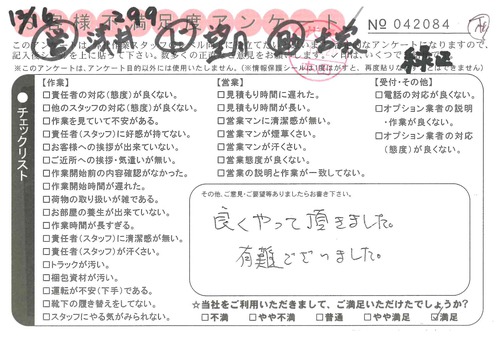 12/16
299
お客様不満足度アンケート
№ 042084
【作業】
□責任者の対応(態度)が良くない。
□他のスタッフの対応(態度)が良くない。
□作業を見ていて不安がある。
□責任者(スタッフ)に好感が持てない。
□お客様への挨拶が出来ていない。
□ご近所への挨拶・気遣いが無い。
□作業開始前の内容確認がなかった。
□作業開始時間が遅れた。
□荷物の取り扱いが雑である。
□お部屋の養生が出来ていない。
□作業時間が長すぎる。
□責任者(スタッフ)に清潔感が無い。
□責任者(スタッフ)が汗くさい。
□トラックが汚い。
□梱包資材が汚い。
□運転が不安(下手)である。
□靴下の履き替えをしてない。
□スタッフにやる気がみられない。
チェックリスト
【営業】
□見積もり時間に遅れた。
□見積もり時間が長い。
□営業マンに清潔感が無い。
□営業マンが煙草くさい。
□営業マンが汗くさい。
□営業態度が良くない。
□営業の説明と作業が一致してない。
【受付・その他】
□電話の対応が良くない。
□オプション業者の説明・作業が良くない。
□オプション業者の対応(態度)が良くない。
その他、ご意見・ご要望等ありましたらお書き下さい。
良くやって頂きました。
有難うございました。
☆当社をご利用いただきまして、ご満足いただけたでしょうか?
□不満 □やや不満 □普通 □やや満足 ☑満足